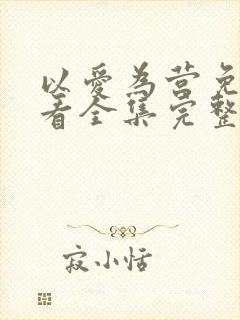 以爱为营免
看全集完整
寂小恬